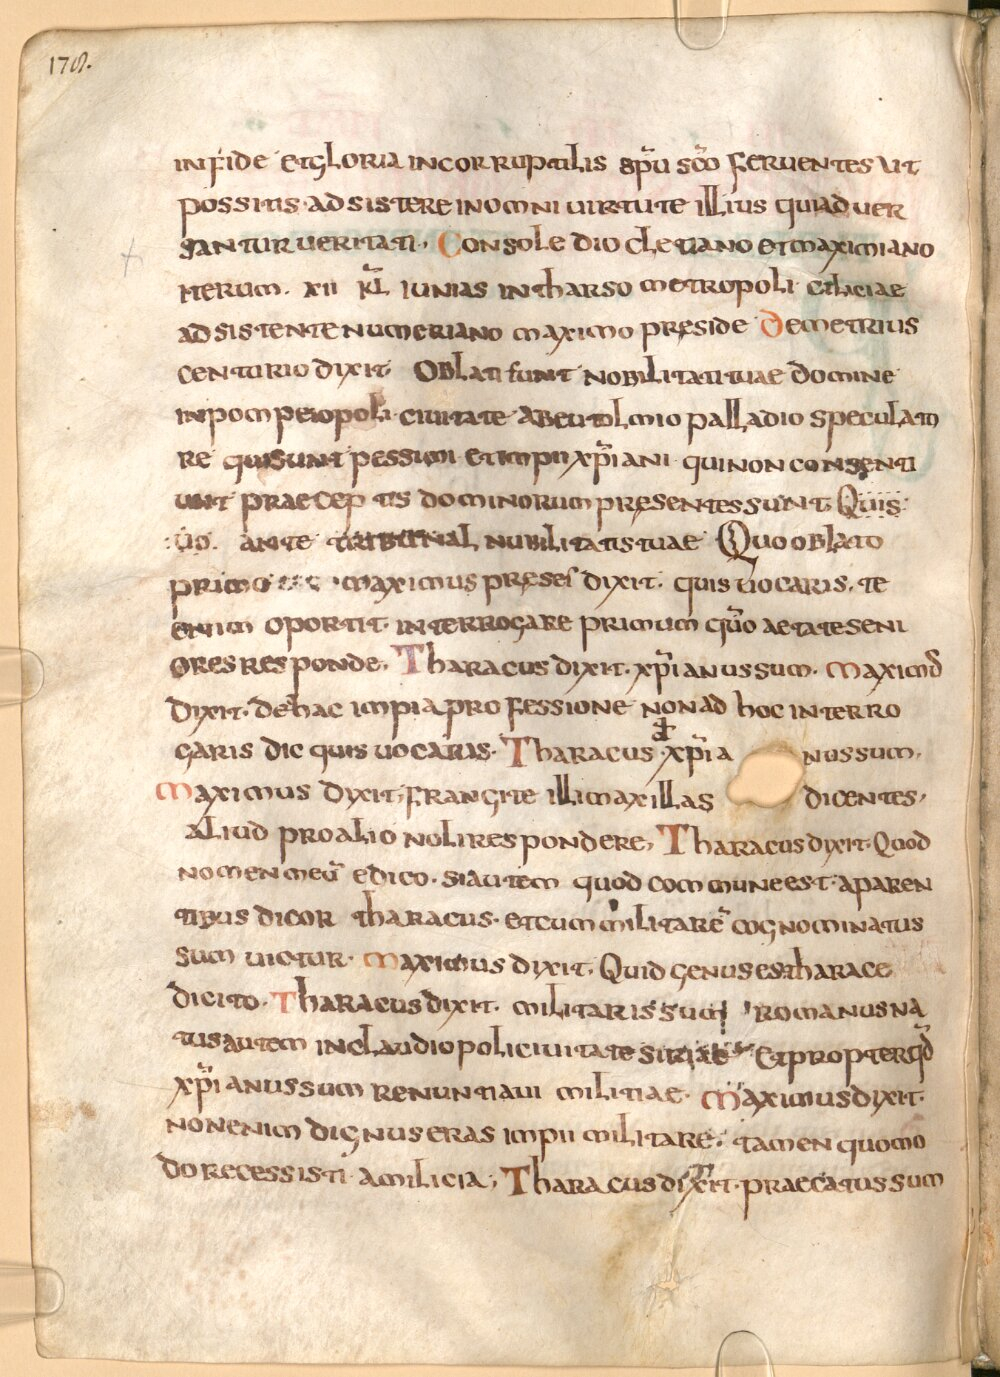 178.
in fide et gloria incorruptilis sp̅u sc̅o feruentes ut
possitis adsistere in omni uirtute illius qui aduer
santur ueritati, Console diocletiano et maximiano
iterum. xii kl̅ iunias in tharso metropoli ciliciae
adsistente numeriano maximo preside Demetrius
centurio dixit Oblati sunt nobilitati tuae domine
in pompeiopoli ciuitate ab eutolmio palladio speculato
re qui sunt pessimi et impii xp̅iani qui non consenti
unt praeceptis dominorum presentes sunt,
ante tribunal nubilitatis tuae Quo oblato
primo maximus preses dixit. quis uocaris. te
enim oportit. interrogare primum qm̅ aetate seni
ores responde, Tharacus dixit. xp̅ianus sum. Maximus
dixit. de hac impia professione non ad hoc interro
garis dic quis uocaris. Tharacus d̅ xp̅ia nus sum.
Maximus dixit, frangite illi maxillas dicentes,
Aliud pro alio noli respondere, Tharacus dixit. Quod
nomen meu̅ edico. si autem quod commune est. a paren
tibus dicor tharacus. et cum militare̅ cognominatus
sum uictur. Maximus dixit. Quid genus es tharace
dicito. Tharacus dixit. militaris sum romanus na
tus autem in claudiopoli ciuitate siriae Et propter qd̅
xp̅ianus sum renuntiaui militiae. Maximus dixit.
non enim dignus eras impii militare. tamen quomo
do recessisti a milicia, Tharacus dixit. praecatus sum